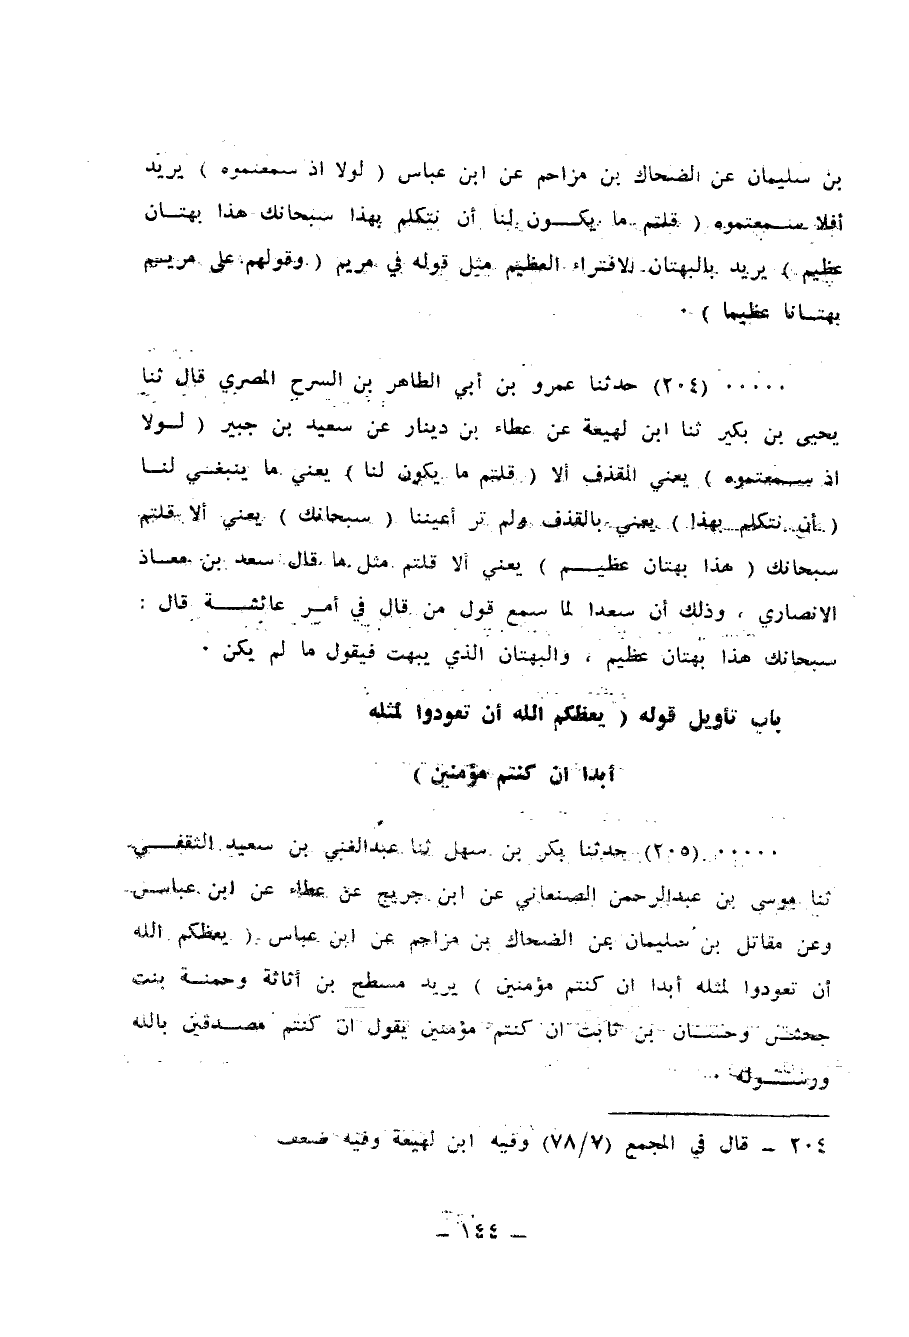 بن سليمان عن الضحاك بن مزاحم عن ابن عباس ( لولا اذ سمعتموه ) يريد
أفلا سـمعتموه ( قلتم ما يكـــون لنا أن نتكلم بهذا سبحانك هذا بهتـان
عظيم ) يريد بالبهتان للافتراء العظيم مثل قوله في مريم ( وقولهم على مريـم
بهتـانا عظيما ) ٠
٠٠٠٠٠ (٢٠٤) حدثنا عمرو بن أبي الطاهر بن السرح المصري قال ثنا
يحيى بن بكير ثنا ابن لهيعة عن عطاء بن دينار عن سعيد بن جبير ( لـولا
اذ سـمعتموه ) يعني القذف ألا ( قلتم ما يكون لنا ) يعني ما ينبغي لنـا
( أن نتكلم بهذا ) يعني بالقذف ولم تر أعيننا ( سبحانك ) يعني ألا قلتم
سبحانك ( هذا بهتان عظيـــم ) يعني ألا قلتم مثل ما قال سعد بن معـاذ
الانصاري ، وذلك أن سعدا لما سمع قول من قال في أمـر عائشـــة قال :
سبحانك هذا بهتان عظيم ، والبهتان الذي يبهت فيقول ما لم يكن ٠
باب تأويل قوله ( يعظكم الله أن تعودوا لمثله
أبدا ان كنتم مؤمنين )
٠٠٠٠٠ (٢٠٥) حدثنا بكر بن سهل ثنا عبدالغني بن سعيد الثقفـــي
ثنا موسى بن عبدالرحمن الصنعاني عن ابن جريج عن عطاء عن ابن عباس
وعن مقاتل بن سليمان عن الضحاك بن مزاحم عن ابن عباس ( يعظكم الله
أن تعودوا لمثله أبدا ان كنتم مؤمنين ) يريد مسطح بن أثاثة وحمنـة بنت
جحش وحسـان بن ثابت ان كنتم مؤمنين يقول ان كنتم مصـدقين بالله
ورسـوله ٠
٢٠٤ ـ قال في المجمع (٧٨/٧) وفيه ابن لهيعة وفيه ضعف
ـ ١٤٤ ـ